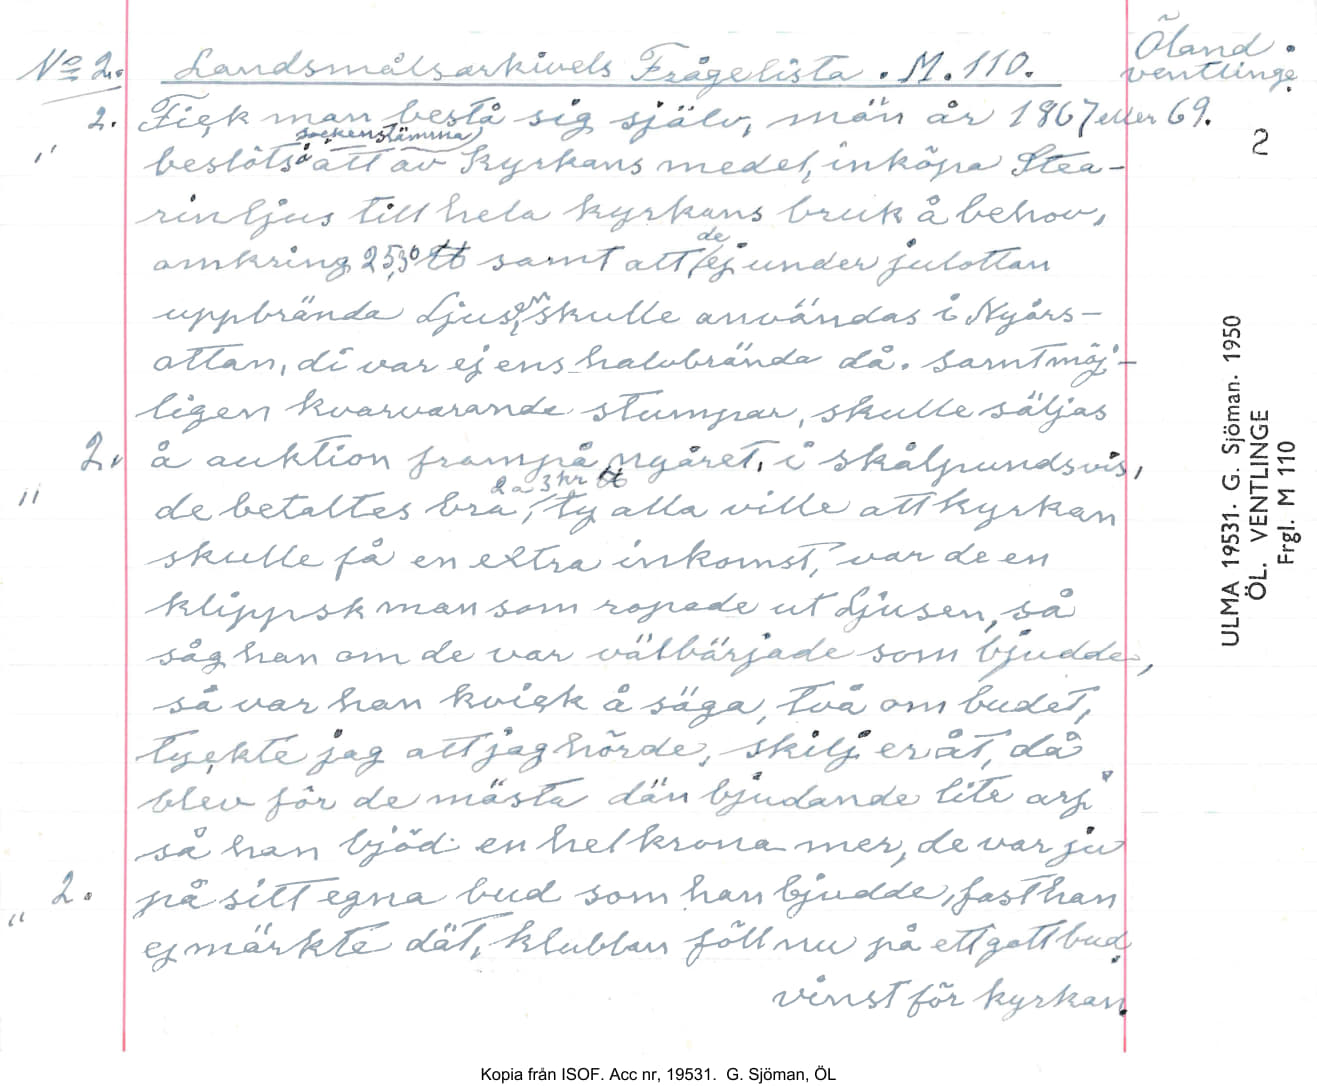 No 2. Landsmålsarkivels Frågelista. M. 110. Öland.
ventlinge.
2. Fick man bestå sig själv, män år 1867 eller 69.
sockenstämma
" beslöts å att av Kyrkans medel, inköpa Stea-
rinljus till hela kyrkans bruk å behov,
omkring 25,30 tt samt att de ej under julottan
uppbrända Ljus, skulle användas i Nyårs-
ottan, di var ej ens halvbrända då. samt möj-
ligen kvarvarande stumpar, skulle säljas
2. å auktion frampå nyåret, i skålpundsvis,
2 a 3 kr tt
" de betaltes bra, ty alla ville att kyrkan
skulle få en extra inkomst, var de en
klippsk man som ropade ut Ljusen, så
såg han om de var välbärjade som bjudde,
så var han kvick å säga, två om budet,
tyckte jag att jag hörde, skilj er åt, då
blev för de mästa dän bjudande lite arj
så han bjöd en hel krona mer, de var ju
2. på sitt egna bud som han bjudde, fast han
" ej märkte dät, klubban föll nu på ett gott bud.
vinst för kyrkan.
2
ULMA 19531. G. Sjöman. 1950
ÖL. VENTLINGE
Frgl. M 110
Kopia från ISOF. Acc nr, 19531. G. Sjöman, ÖL